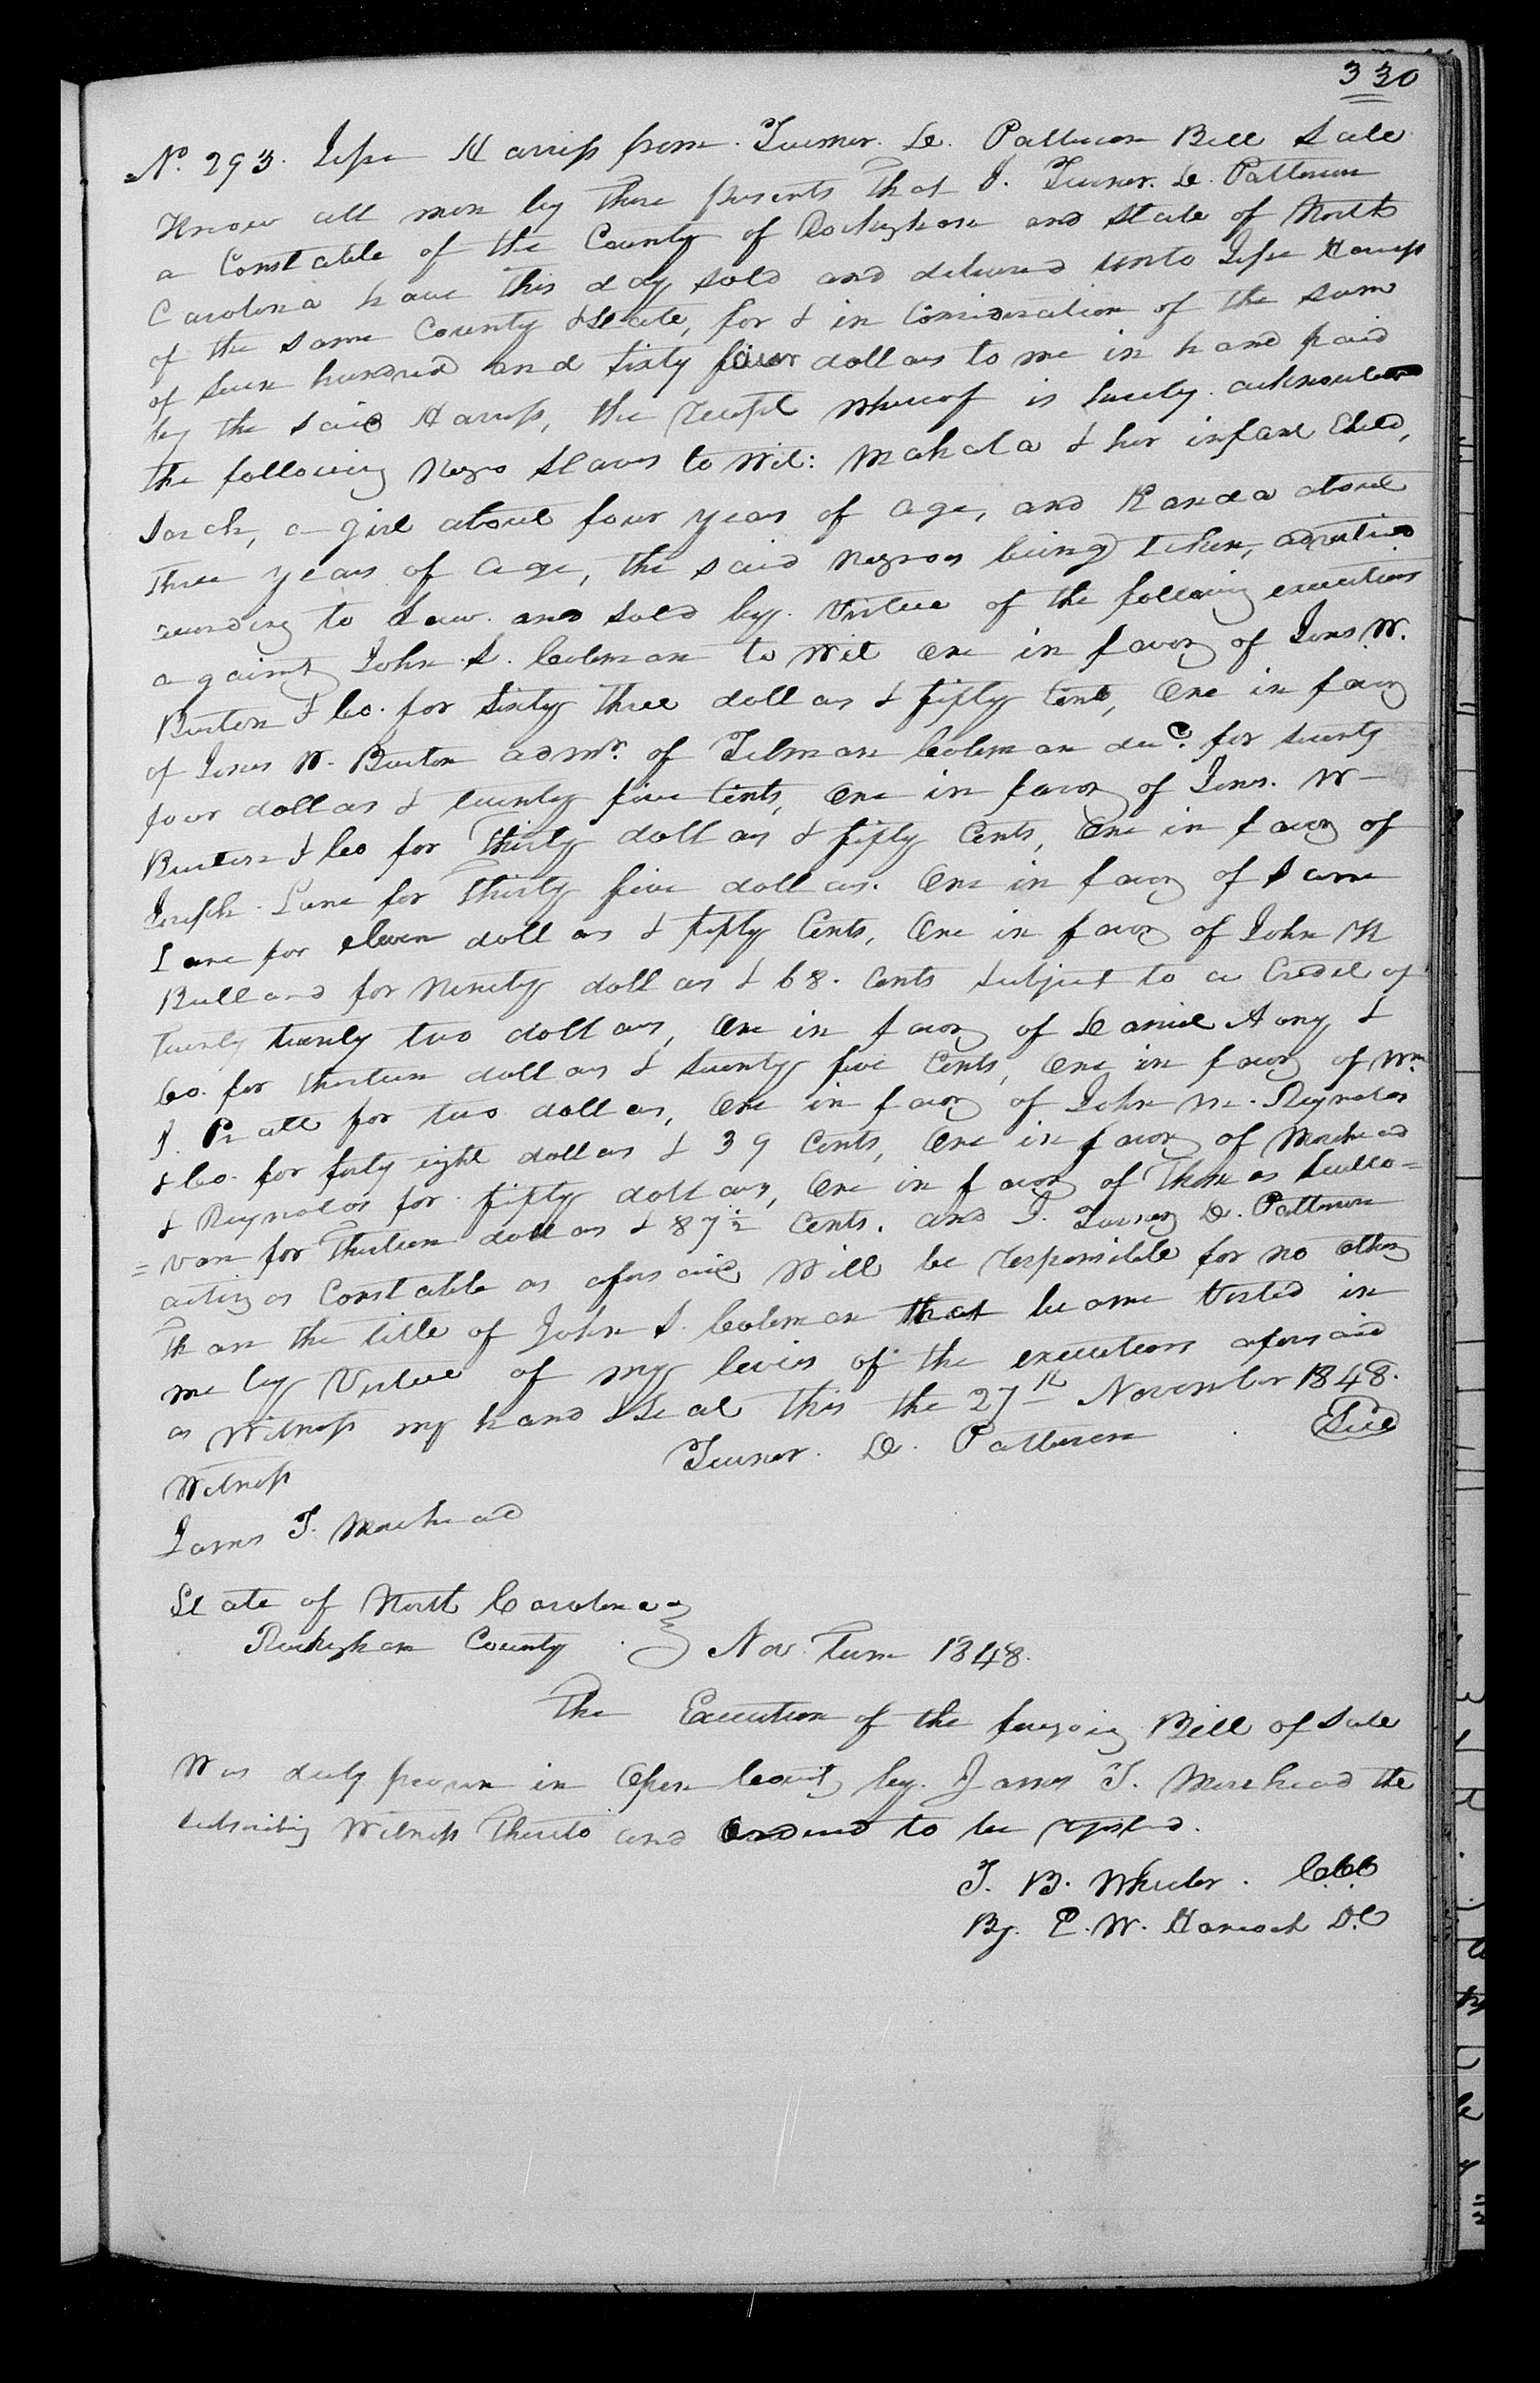 330
No. 293. Jesse Harriss from Turner D. Patterson Bill Sale
Know all men by these presents that I. Turner D. Patterson
a Constable of the County of Rockingham and State of North
Carolina have this day sold and delivered unto Jesse Harriss
of the same County & State, for & in Consideration of the sum
of Seven hundred and Sixty four dollars to me in hand paid
by the said Harriss, the receipt whereof is hereby acknowled
the following Negro Slaves to Wit: Mahala & her infant Child,
Sarah, a girl about four years of age, and Randa about
three years of age, the said Negroes being taken, advertised
according to Law and sold by Virtue of the following executions
against John S. Coleman to Wit One in favor of Jones W.
Burton & Co. for Sixty three dollars & fifty Cents, One in favor
of Jones W. Burton admr. of Tilman Coleman decd. for twenty
four dollars & twenty five Cents, One in favor of Jones. W
Burton & Co for Thirty dollars & fifty Cents, One in favor of
Joseph Lane for Thirty five dollars. One in favor of Same
Lane for eleven dollars & fifty Cents, One in favor of John K
Bullard for Ninety dollars & 68. Cents Subject to a Credit of
Twenty twenty two dollars, One in favor of Daniel &
Co. for thirteen dollars & twenty five Cents, One in favor of Wm.
J. Pratt for two dollars, One in favor of John M. Reynolds
& Co. for forty eight dollars & 39 Cents, One in favor of Morehead
& Reynolds for fifty dollars, One in favor of Thomas Sulli=
=van for Thirteen dollars & 87½ Cents. and I. Turner D. Patterson
acting as Constable as aforesaid Will be responsible for no other
than the title of John S. Coleman that became Vested in
me by Virtue of my levies of the executions aforesaid
as Witness my hand & Seal this the 27th November 1848.
Turner. D. Patterson Seal
Witness
James T. Morehead
State of North Carolina
Rockingham County Nov. Term 1848.
The Execution of the foregoing Bill of Sale
Was duly proven in Open Court by James T. Morehead the
subscribing Witness Thereto and Ordered to be registered.
T. B. Wheeler. C.C.C
By. P. W. Hancock D.C